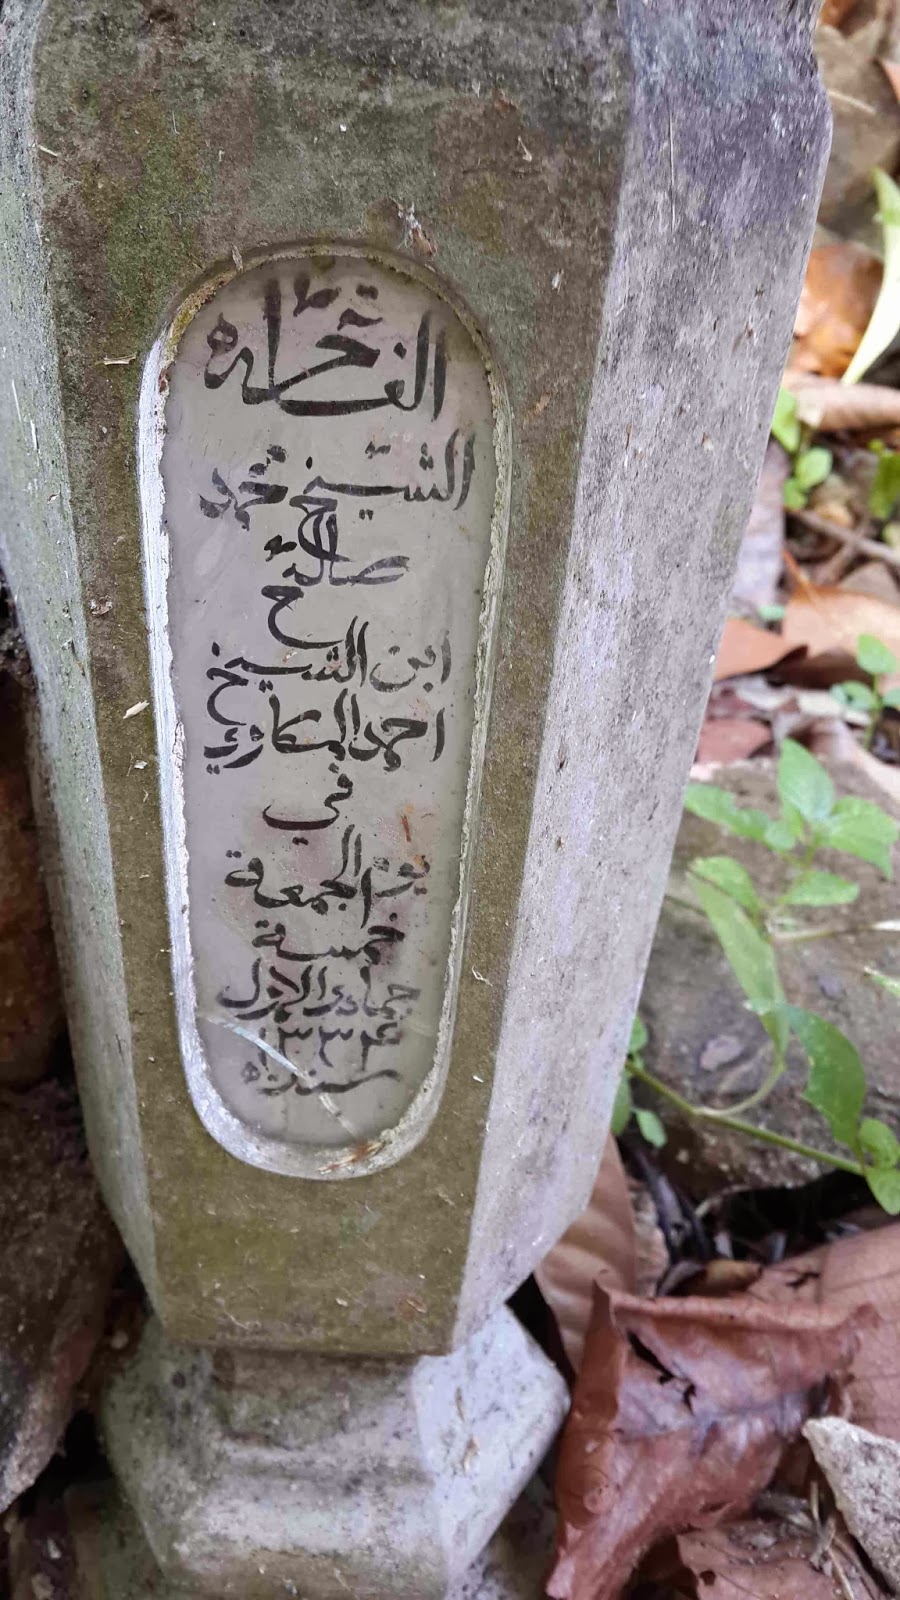 الفاتحة له
الشيخ محمد
صالح
ابن الشيخ
احمد
في
يوم الجمعة
خمسة
جمادى الاول
١٣٣٤
سنة